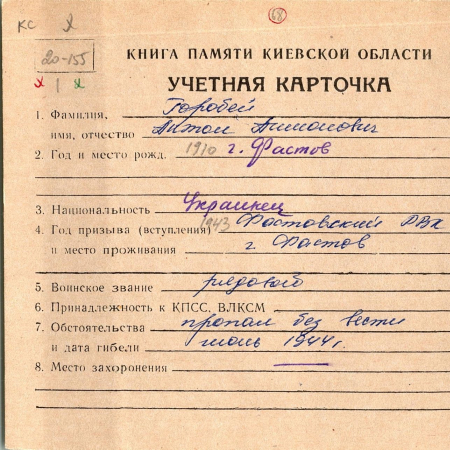 КС X
68
20-155
х | х
КНИГА ПАМЯТИ КИЕВСКОЙ ОБЛАСТИ
УЧЕТНАЯ КАРТОЧКА
1. Фамилия, Горобей
имя, отчество Антон Антонович
2. Год и место рожд. 1910 г. Фастов
3. Национальность Украинец
4. Год призыва (вступления) 1943 Фастовский РВК
и место проживания г. Фастов
5. Воинское звание рядовой
6. Принадлежность к КПСС, ВЛКСМ
7. Обстоятельства пропал без вести
и дата гибели июль 1944г.
8. Место захоронения —